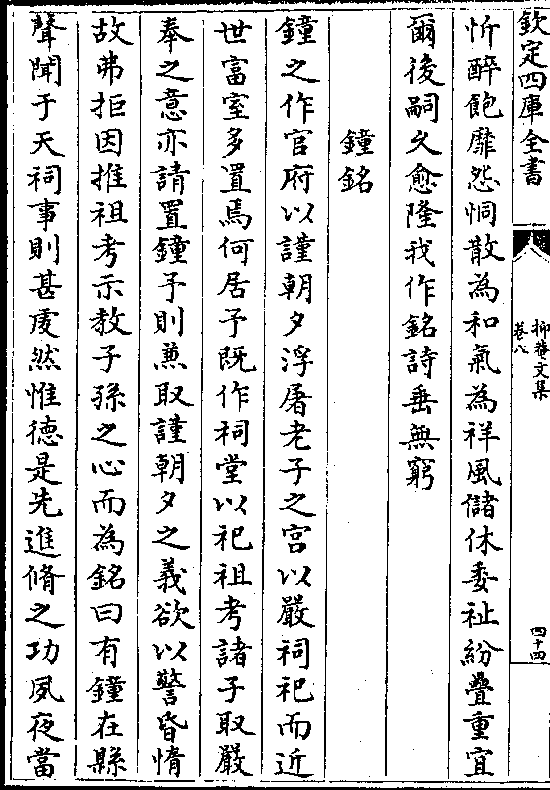 欽定四庫全書
抑菴文集
卷八
四十四
忻醉飽靡怨恫散為和氣為祥風儲休委祉紛疊重宜
爾後嗣久愈隆我作銘詩垂無窮
鐘銘
鐘之作官府以謹朝夕浮屠老子之宮以嚴祠祀而近
世富室多置焉何居予既作祠堂以祀祖考諸子取嚴
奉之意亦請置鐘予則兼取謹朝夕之義欲以警昏惰
故弗拒因推祖考示教子孫之心而為銘曰有鐘在縣
聲聞于天祠事則甚虔然惟德是先進脩之功夙夜當